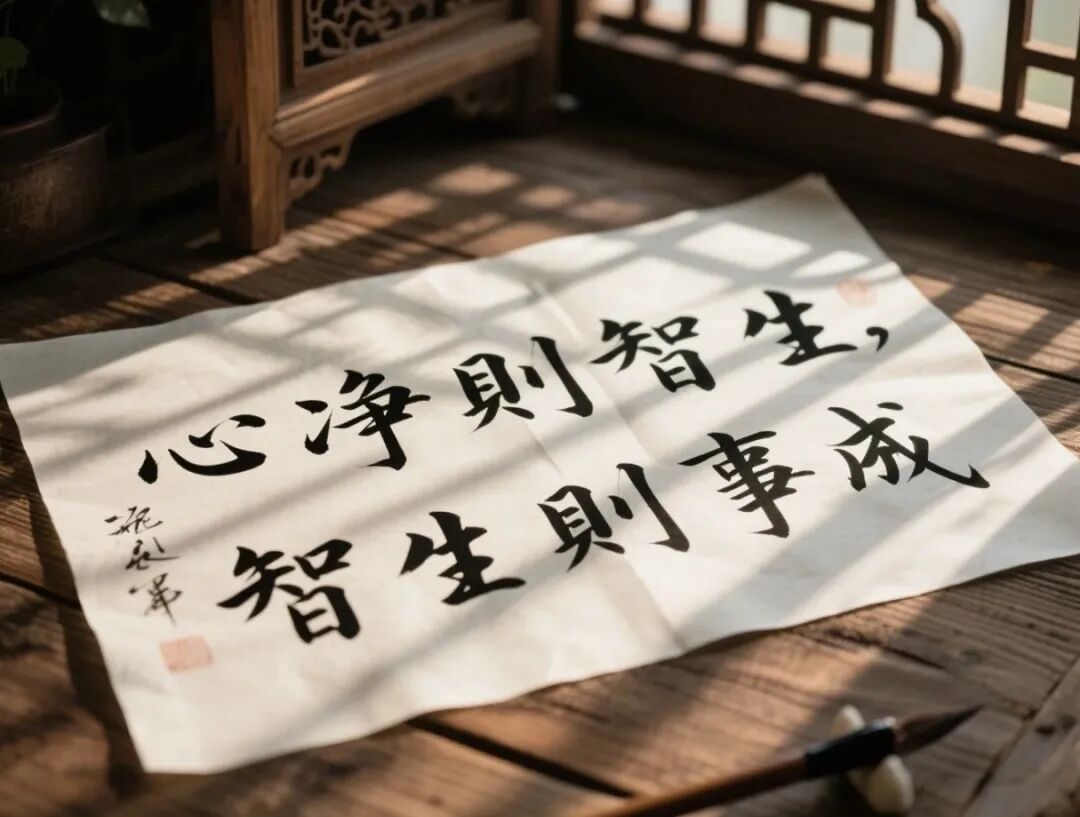 心净則智生，
智生則事成